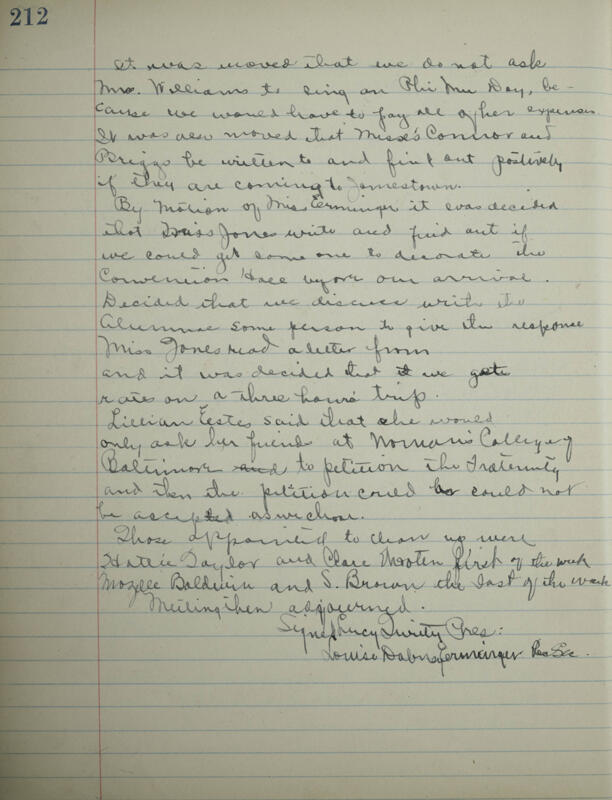 212
It was moved that we do not ask
Mrs. Williams to sing on Phi Mu Day, be-
cause we would have to pay all of her expenses
It was also moved that Misses Connor and
Briggs be written to and find out positively
if they are coming to Jamestown.
By motion of Miss Erminger it was decided
that Miss Jones write and find out if
we could get some one to decorate the
Convention Hall before our arrival.
Decided that we discuss with the
Alumnae some person to give the response
Miss Jones read a letter from
and it was decided that we get
rates on a three hours trip.
Lillian Estes said that she would
only ask her friends at Woman's College of
Baltimore to petition the Fraternity
and then the petition could could not
be accepted as we chose.
Those appointed to clean up were
Hattie Taylor and Clare first of the week
Mozelle Baldwin and S. Brown the last of the week
Meeting then adjourned.
Signed Lucy Pres:
Louise Erminger Rec Sec.